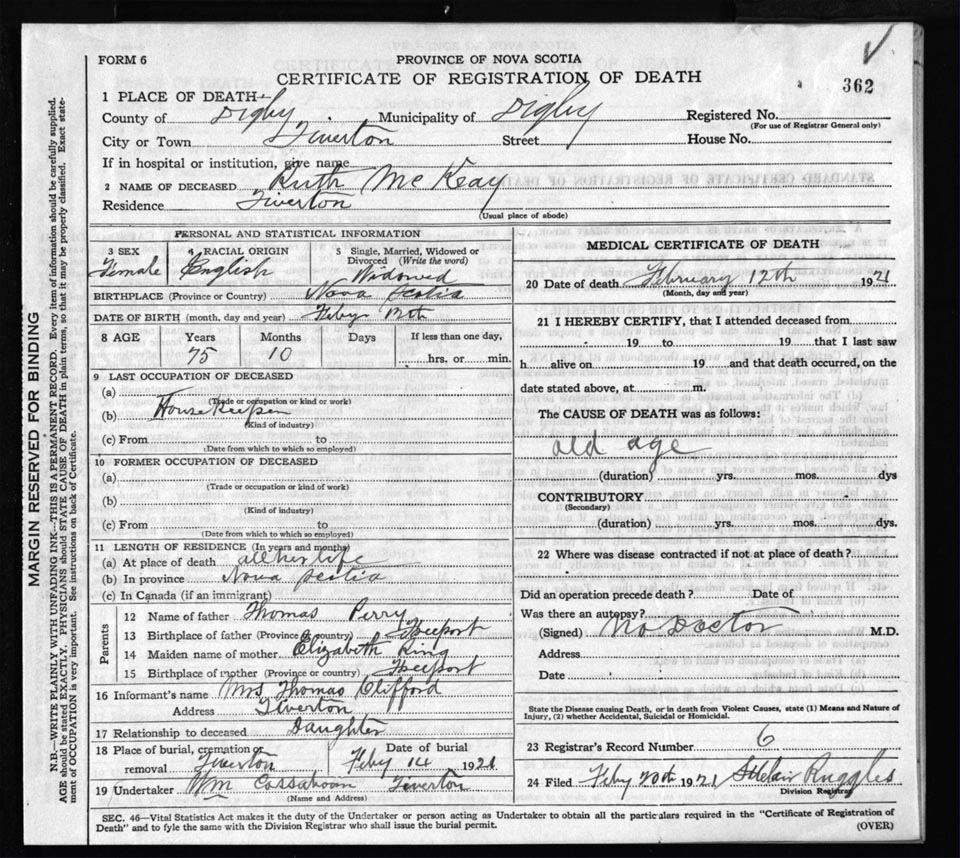 FORM 6
PROVINCE OF NOVA SCOTIA
CERTIFICATE OF REGISTRATION OF DEATH
362
1 PLACE OF DEATH—
County of Digby Municipality of Digby Registered No.
(For use of Registrar General only)
City or Town Tiverton Street House No.
If in hospital or institution, give name
2 NAME OF DECEASED Ruth McKeay
Residence Tiverton
(Usual place of abode)
PERSONAL AND STATISTICAL INFORMATION
3 SEX Female
4 RACIAL ORIGIN English
5 Single, Married, Widowed or Divorced (Write the word) Widowed
BIRTHPLACE (Province or Country) Nova Scotia
DATE OF BIRTH (month, day and year) Feby 12th
8 AGE Years Months Days If less than one day,
75 10 hrs. or min.
9 LAST OCCUPATION OF DECEASED
(a)
(Trade or occupation or kind or work)
(b) Housekeeper
(Kind of industry)
(c) From to
(Date from which to which so employed)
10 FORMER OCCUPATION OF DECEASED
(a)
(Trade or occupation or kind of work)
(b)
(Kind of industry)
(c) From to
(Date from which to which so employed)
11 LENGTH OF RESIDENCE (In years and months)
(a) At place of death all her life
(b) In province Nova Scotia
(c) In Canada (if an immigrant)
Parents
12 Name of father Thomas Perry
13 Birthplace of father (Province or country) Freeport
14 Maiden name of mother Elizabeth King
15 Birthplace of mother (Province or country) Freeport
16 Informant's name Mrs Thomas Clifford
Address Tiverton
17 Relationship to deceased Daughter
18 Place of burial, cremation or removal Tiverton
Date of burial Feby 14 1921
19 Undertaker Wm Cossaboom Tiverton
(Name and Address)
MEDICAL CERTIFICATE OF DEATH
20 Date of death February 12th 1921
(Month, day and year)
21 I HEREBY CERTIFY, that I attended deceased from
19 to 19 that I last saw
h alive on 19 and that death occurred, on the
date stated above, at m.
The CAUSE OF DEATH was as follows:
old age
(duration) yrs. mos. dys
CONTRIBUTORY
(Secondary)
(duration) yrs. mos. dys.
22 Where was disease contracted if not at place of death?
Did an operation precede death? Date of
Was there an autopsy?
(Signed) No Doctor M.D.
Address
Date
State the Disease causing Death, or in death from Violent Causes, state (1) Means and Nature of
Injury, (2) whether Accidental, Suicidal or Homicidal.
23 Registrar's Record Number 6
24 Filed Feby 20th 1921 Ruggles
Division Registrar
SEC. 46—Vital Statistics Act makes it the duty of the Undertaker or person acting as Undertaker to obtain all the particulars required in the "Certificate of Registration of
Death" and to fyle the same with the Division Registrar who shall issue the burial permit.
(OVER)
MARGIN RESERVED FOR BINDING
N.B.—WRITE PLAINLY WITH UNFADING INK—THIS IS A PERMANENT RECORD. Every item of information should be carefully supplied.
AGE should be stated EXACTLY. PHYSICIANS should STATE CAUSE OF DEATH in plain terms, so that it may be properly classified. Exact state-
ment of OCCUPATION is very important. See instructions on back of Certificate.